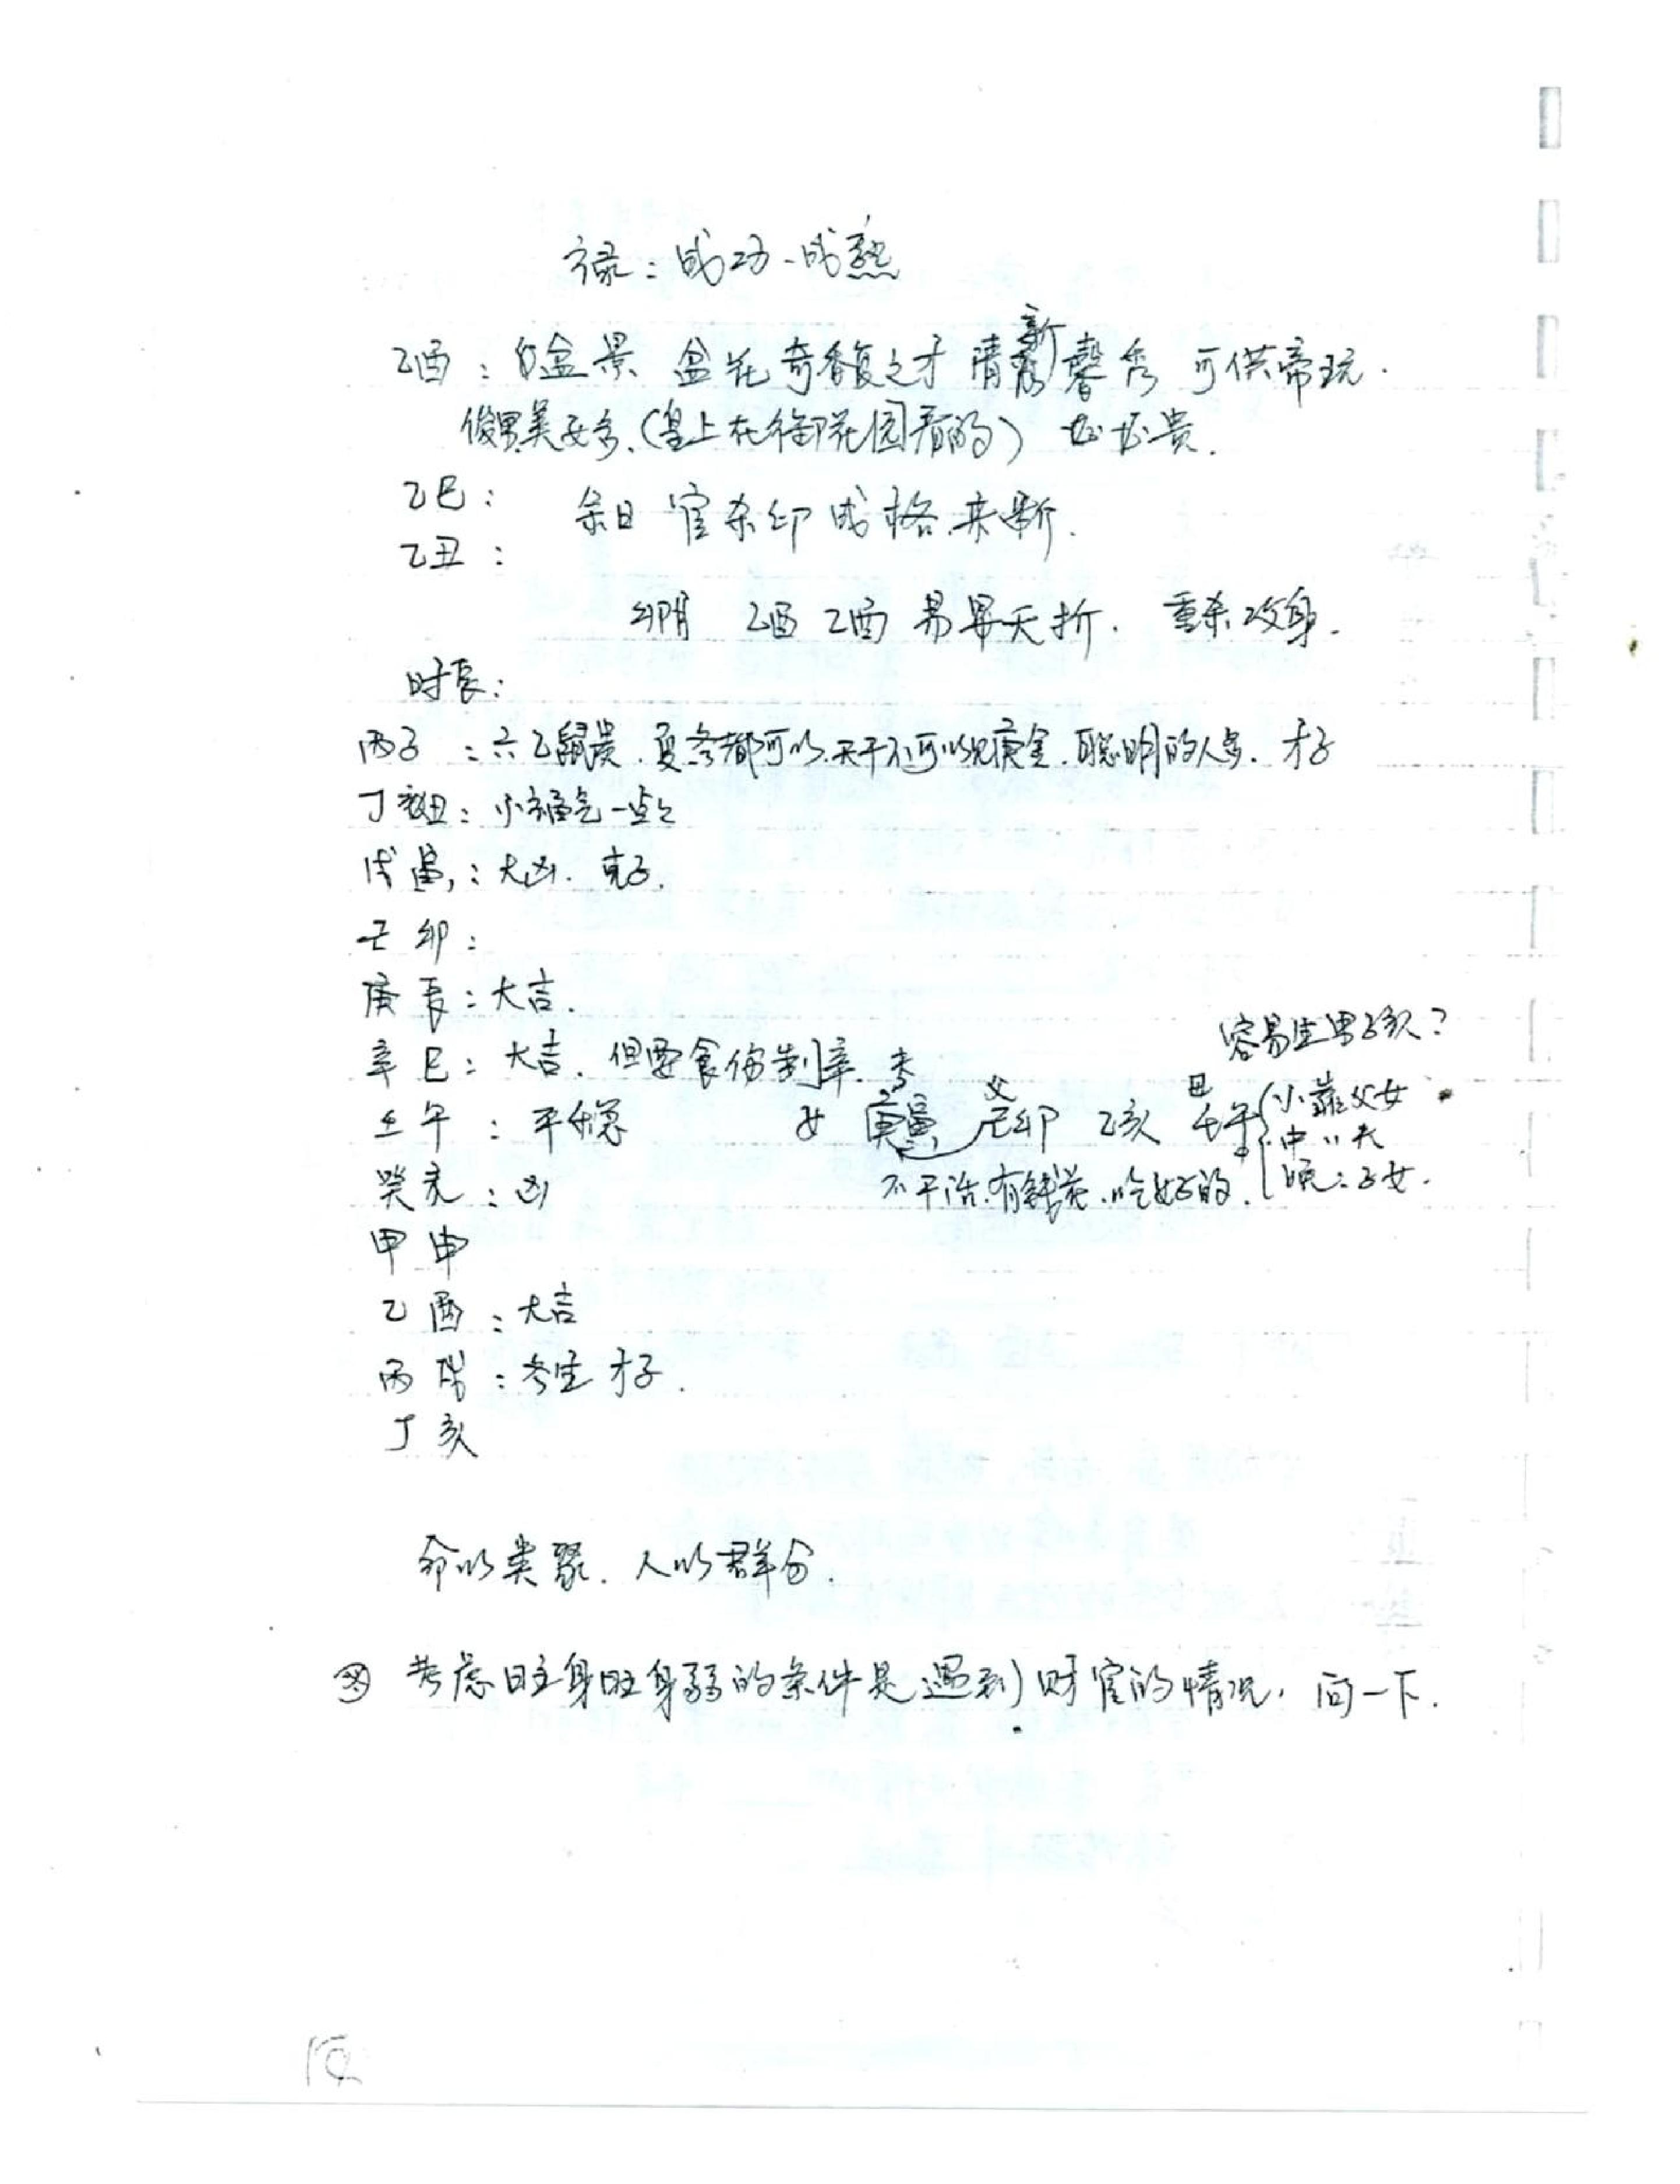 禄：成功、成熟
乙酉：盆景 盆花 奇香馥之才 清新馨秀 可供帝玩.
俊男美女多、(皇上在御花园看的) 必贵.
乙巳： 余日 官杀印成格来断.
乙丑：
卯月 乙酉 乙酉 易早夭折. 重杀攻身.
时辰：
丙子：六乙鼠贵.夏冬都可以.天干不可以见庚金.聪明的人多. 才子
丁丑：小福气一些
戊寅：大凶. 克子.
己卯：
庚辰：大吉.
容易生男孩?
辛巳：大吉. 但要食伤制辛.
壬午：平稳 女 庚寅 己卯 乙亥 壬午 小靠父女
父
中〃夫
癸未：凶 不干活.有钱花.吃好的. 晚：子女.
甲申
乙酉：大吉
丙戌：冬生 才子.
丁亥
命以类聚. 人以群分.
考虑日主身旺身弱的条件是遇到财官的情况. 问一下.